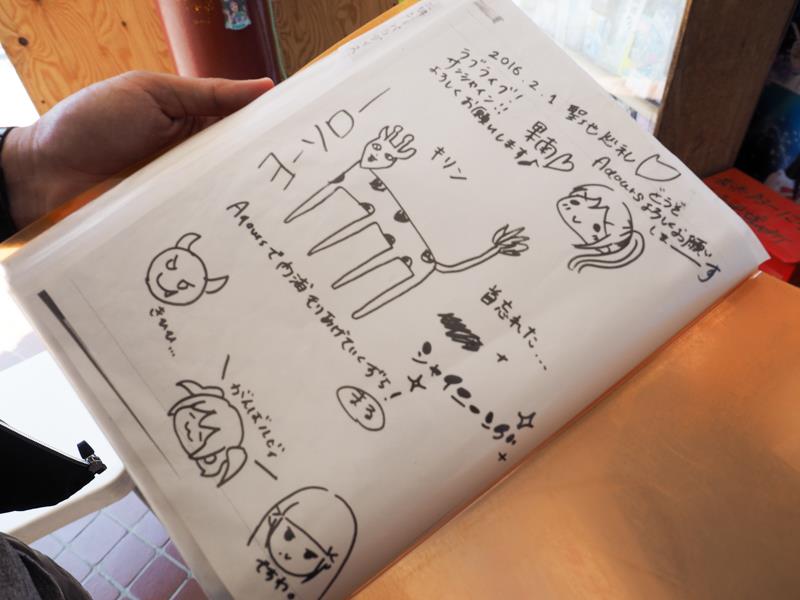 2016.2.1 聖地巡礼♡
ラブライブ!
サンシャイン!!
よろしくお願いします♪
果南♡
どうぞ
Aqoursよろしくお願い
しまーーす
ヨーソロー
キリン
Aqoursで内浦もりあげていくずら!
まる
首忘れた...
シャイニーング
きひひ...
がんばルビィ